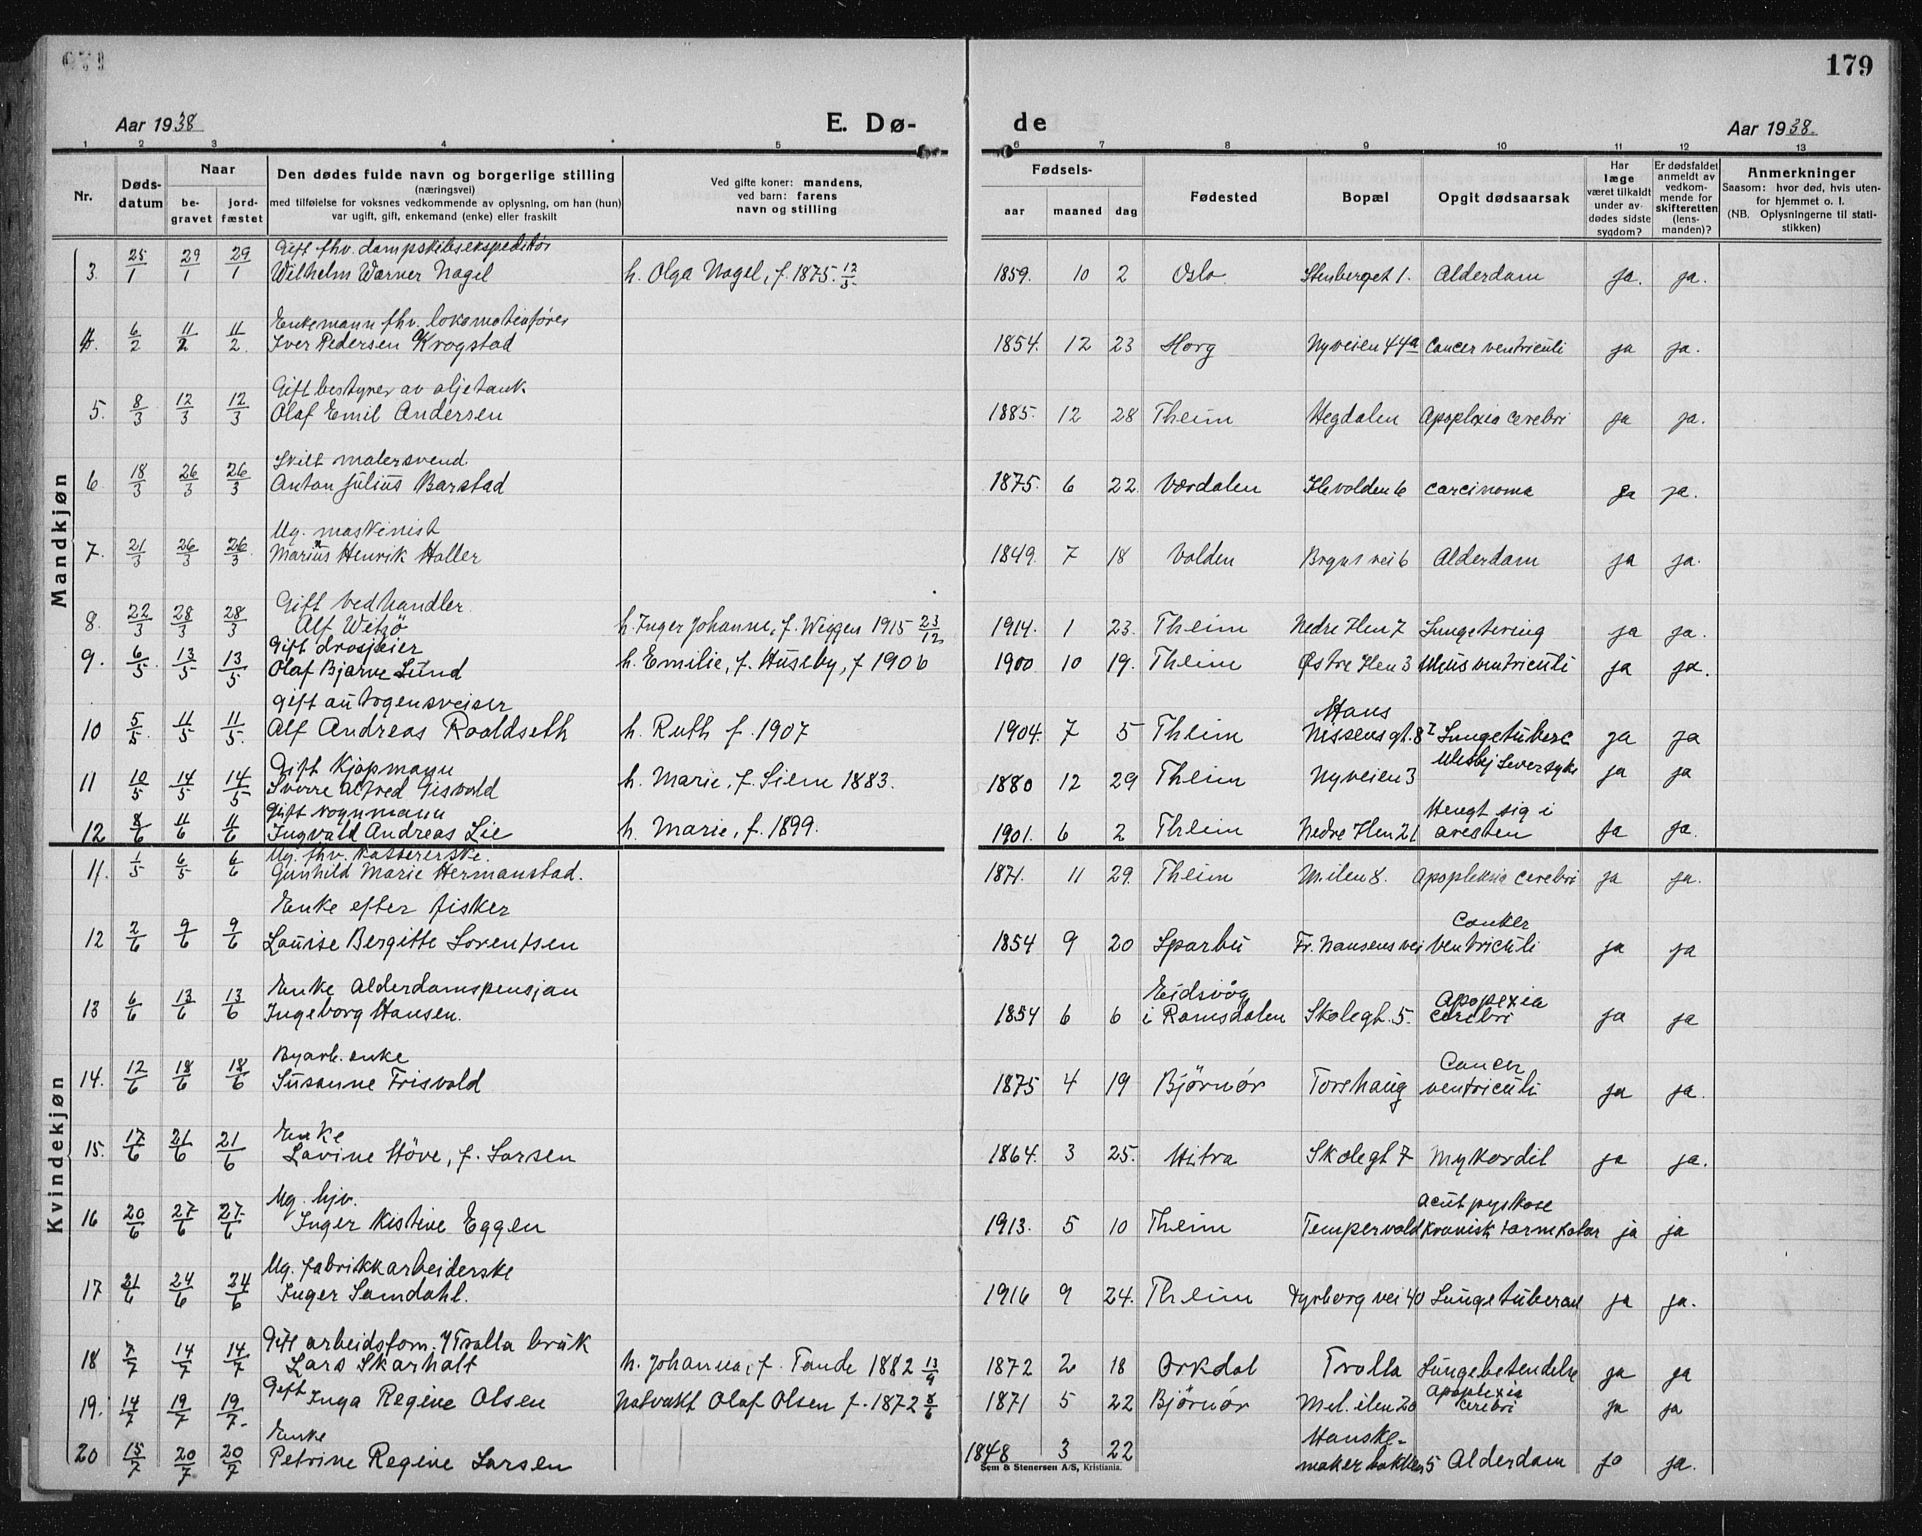 179
Aar 1938
E. Dø-
de
Aar 1938.
1 2 3 4 5 6 7 8 9 10 11 12 13
Nr.
Døds-
datum
Naar
be-
gravet
jord-
fæstet
Den dødes fulde navn og borgerlige stilling
(næringsvei)
med tilføielse for voksnes vedkommende av oplysning, om han (hun)
var ugift, gift, enkemand (enke) eller fraskilt
Ved gifte koner: mandens,
ved barn: farens
navn og stilling
Fødsels-
aar maaned dag
Fødested
Bopæl
Opgit dødsaarsak
Har
læge
været tilkaldt
under av-
dødes sidste
sygdom?
Er dødsfaldet
anmeldt av
vedkom-
mende for
skifteretten
(lens-
manden)?
Anmerkninger
Saasom: hvor død, hvis uten-
for hjemmet o. l.
(NB. Oplysningerne til stati-
stikken)
Mandkjøn
Gift fhv. dampskibsekspeditør
3. 25/1 29/1 29/1 Wilhelm Warner Nagel h. Olga Nagel, f. 1875. 12/5 1859. 10 2 Oslo Stenberget 1. Alderdom ja. ja.
Enkemann fhv. lokomotivfører
4. 6/2 11/2 11/2. Iver Pedersen Krogstad 1854. 12 23 Horg Nyveien 44a Cancer ventriculi ja ja.
Gift bestyrer av oljetank
5. 8/3 12/3 12/3 Olaf Emil Andersen 1885. 12 28 Theim Hegdalen Apoplexia cerebri ja ja.
Skilt malersvend
6 18/3 26/3 26/3 Anton Julius Barstad 1875. 6 22. Værdalen Ilevolden 6 carcinoma ja ja.
Ug. maskinist
7. 21/3 26/3 26/3. Marius Henrik Holler 1849. 7 18 Volden Brynsvei 6 Alderdom ja ja.
Gift vedhandler
8. 22/3 28/3 28/3 Alf Witzø h. Inger Johanne, f. 1915 23/12 1914. 1 23. Theim Nedre Ilen 7 Lungetæring ja ja.
Gift drosjeeier
9. 6/5. 13/5 13/5 Olaf Bjarne Lund h. Emilie, f. Huseby, f 1906 1900 10 19. Theim Østre Ilen 3 Ulcus ventriculi ja ja.
Gift autogensveiser
10 5/5. 11/5 11/5. Alf Andreas Roaldseth h. Ruth f. 1907 1904. 7 5 Theim Hans
Nissens gt. 8 I Lungetuberc ja ja
Gift kjøpmann
11 10/5 14/5 14/5 Sverre Alfred Gisvold h. Marie, f. Siem 1883. 1880 12 29 Theim Nyveien 3 Leversyke ja ja
Gift vognmann
12 8/6 11/6 11/6 Ingvald Andreas Lie h. Marie, f. 1899. 1901. 6 2 Theim Nedre Ilen 21 Hengt sig i
aresten ja ja.
Kvindekjøn
Ug. fhv. kassererske.
11. 1/5 6/5 6/6 Gunhild Marie Hermanstad. 1871. 11 29. Theim M.ilen 8. Apopleksia cerebri ja ja.
Enke efter fisker
12 2/6 9/6 9/6 Louise Bergitte Lorentsen 1854 9 20 Sparbu Fr. Nansens vei Canker
ventriculi ja ja
Enke Alderdomspensjon
13 6/6 13/6 13/6 Ingeborg Hansen. 1854 6 6 Eidsvåg
i Romsdalen Skolegt. 5. Apopexia
cerebri ja ja
Byarb. enke
14. 12/6 18/6 18/6 Susanne Frisvold 1875 4 19 Bjørnør Toreshaug Cancer
ventriculi ja ja.
Enke
15. 17/6 21/6 21/6 Lavine Høve, f. Larsen 1864. 3 25. Hitra Skolegt 7 Mykordit ja ja.
Ug. hjv.
16 20/6 27/6 27/6 Inger Kistine Eggen 1913. 5 10 Theim Tempervold Acut psykose
kronisk tarmkatar ja ja
Ug. fabrikkarbeiderske
17 21/6 24/6 24/6 Inger Samdahl. 1916 9 24. Theim Dyrborg vei 40 Lungetubercul ja ja.
Gift arbeidsform. v/ Trolla bruk
18 7/7 14/7 14/7 Lars Skarholt h. Johanna, f. Tande 1882 13/9 1872 2 18 Orkdal Trolla Lungebetendelse ja ja
19. 14/7 19/7 19/7. Gift Inga Regine Olsen Natvakt Olaf Olsen f. 1872 8/6 1871 5 22 Bjørnør Mel. ilen 20 Apoplexia
cerebri ja ja
Enke
20 15/7 20/7 20/7 Petrine Regine Larsen 1848 3 22 Hanske-
makerbakken 5 Alderdom ja ja.
Sem & Stenersen A/S, Kristiania.